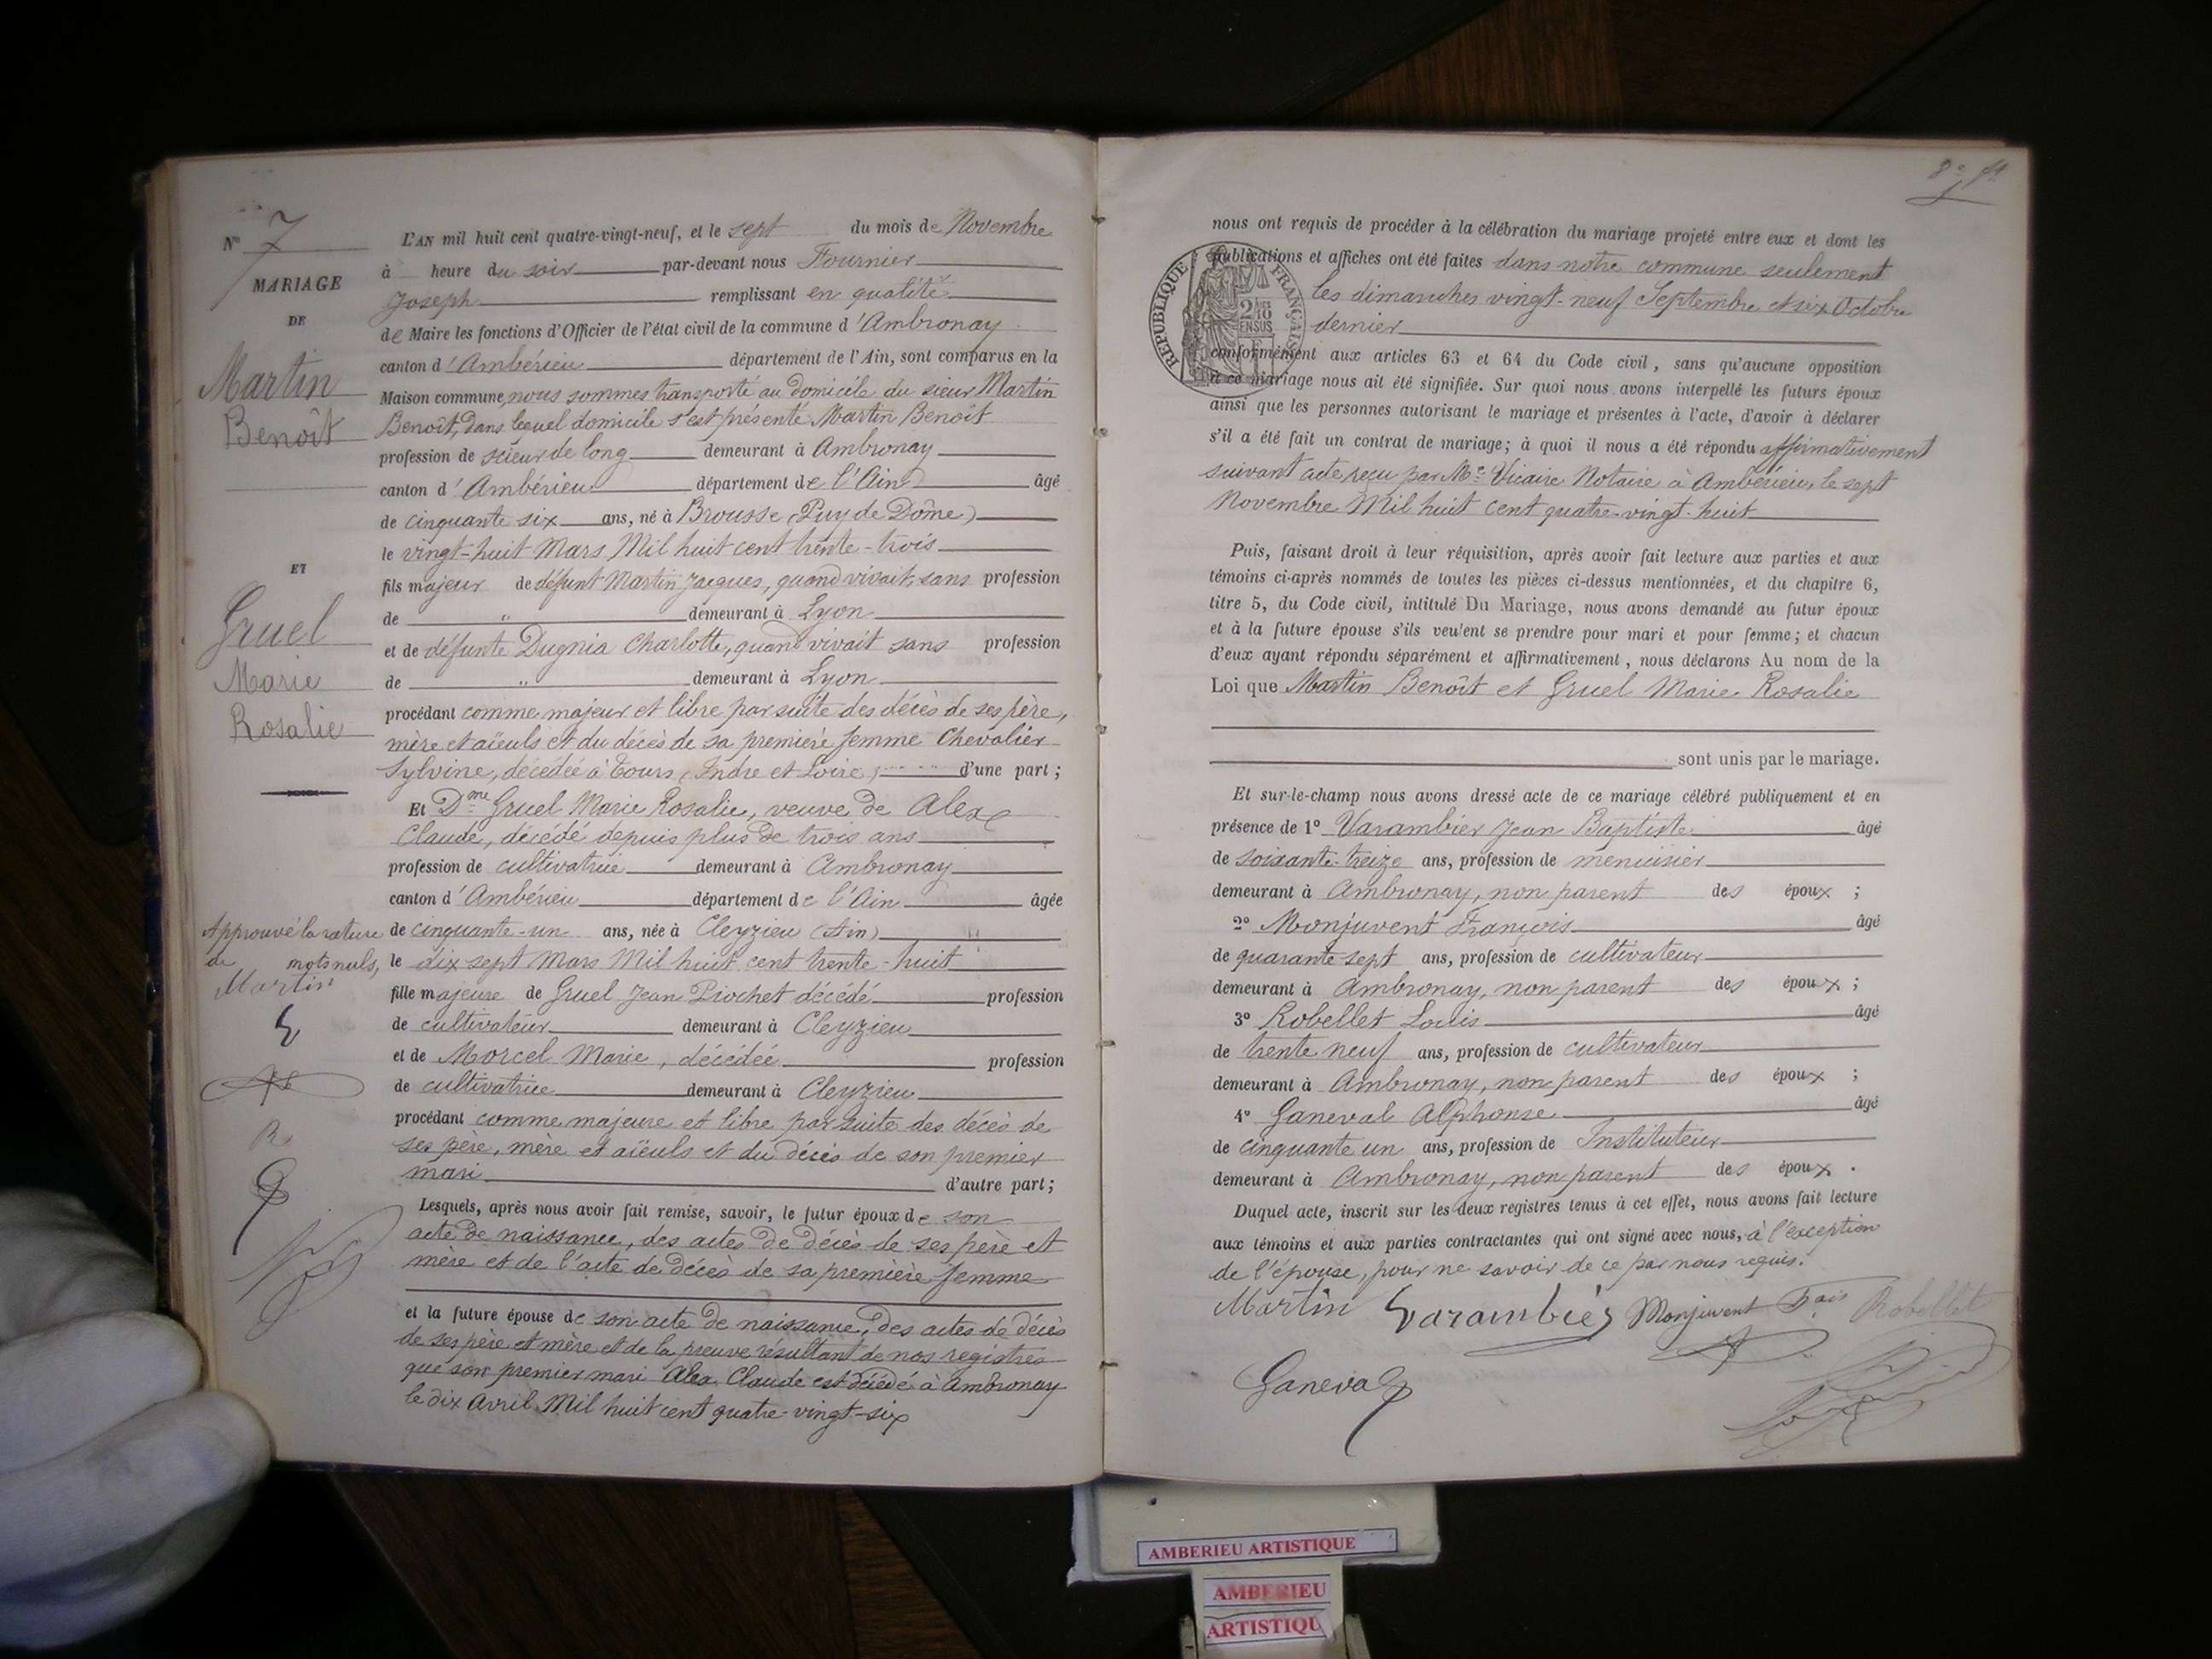 N° 7
MARIAGE
DE
Martin
Benoît
ET
Gruel
Marie
Rosalie
Approuvé la rature
de mots nuls,
Martin
L'AN mil huit cent quatre-vingt-neuf, et le sept du mois de Novembre
à heure du soir par-devant nous Fournier
Joseph remplissant en qualité
de Maire les fonctions d'Officier de l'état civil de la commune d'Ambronay
canton d'Ambérieu département de l'Ain, sont comparus en la
Maison commune, nous sommes transporté au domicile du sieur Martin
Benoît, dans lequel domicile s'est présenté Martin Benoît
profession de scieur de long demeurant à Ambronay
canton d'Ambérieu département de l'Ain âgé
de cinquante six ans, né à Brousse (Puy de Dôme)
le vingt-huit Mars Mil huit cent trente-trois
fils majeur de défunt Martin Jacques, quand vivait, sans profession
de " demeurant à Lyon
et de défunte Dugnia Charlotte, quand vivait sans profession
de " demeurant à Lyon
procédant comme majeur et libre par suite des décès de ses père,
mère et aïeuls et du décès de sa première femme Chevalier
Sylvine, décédée à Tours (Indre et Loire) d'une part;
Et Dme Gruel Marie Rosalie, veuve de Alex
Claude, décédé depuis plus de trois ans
profession de cultivatrice demeurant à Ambronay
canton d'Ambérieu département de l'Ain âgée
de cinquante-un ans, née à Cleyzieu (Ain) "
le dix sept Mars Mil huit cent trente-huit
fille majeure de Gruel Jean Piochet décédé profession
de cultivateur demeurant à Cleyzieu
et de Morcel Marie, décédée profession
de cultivatrice demeurant à Cleyzieu
procédant comme majeure et libre par suite des décès de
ses père, mère et aïeuls et du décès de son premier
mari d'autre part;
Lesquels, après nous avoir fait remise, savoir, le futur époux de son
acte de naissance, des actes de décès de ses père et
mère et de l'acte de décès de sa première femme
et la future épouse de son acte de naissance, des actes de décès
de ses père et mère et de la preuve résultant de nos registres
que son premier mari Alex Claude est décédé à Ambronay
le dix Avril Mil huit cent quatre-vingt-six
nous ont requis de procéder à la célébration du mariage projeté entre eux et dont les
publications et affiches ont été faites dans notre commune seulement
les dimanches vingt-neuf Septembre et six Octobre
dernier
RÉPUBLIQUE FRANÇAISE
2/10
EN SUS
conformément aux articles 63 et 64 du Code civil, sans qu'aucune opposition
à ce mariage nous ait été signifiée. Sur quoi nous avons interpellé les futurs époux
ainsi que les personnes autorisant le mariage et présentes à l'acte, d'avoir à déclarer
s'il a été fait un contrat de mariage; à quoi il nous a été répondu affirmativement
suivant acte reçu par Me Vicaire Notaire à Ambérieu, le sept
Novembre Mil huit cent quatre-vingt-huit
Puis, faisant droit à leur réquisition, après avoir fait lecture aux parties et aux
témoins ci-après nommés de toutes les pièces ci-dessus mentionnées, et du chapitre 6,
titre 5, du Code civil, intitulé Du Mariage, nous avons demandé au futur époux
et à la future épouse s'ils veulent se prendre pour mari et pour femme; et chacun
d'eux ayant répondu séparément et affirmativement, nous déclarons Au nom de la
Loi que Martin Benoît et Gruel Marie Rosalie
sont unis par le mariage.
Et sur-le-champ nous avons dressé acte de ce mariage célébré publiquement et en
présence de 1° Varambier Jean Baptiste âgé
de soixante-treize ans, profession de menuisier
demeurant à Ambronay, non parent des époux ;
2° Monjuvent François âgé
de quarante sept ans, profession de cultivateur
demeurant à Ambronay, non parent des époux ;
3° Robellet Louis âgé
de trente neuf ans, profession de cultivateur
demeurant à Ambronay, non parent des époux ;
4° Ganeval Alphonse âgé
de cinquante un ans, profession de Instituteur
demeurant à Ambronay, non parent des époux .
Duquel acte, inscrit sur les deux registres tenus à cet effet, nous avons fait lecture
aux témoins et aux parties contractantes qui ont signé avec nous, à l'exception
de l'épouse, pour ne savoir de ce par nous requis.
Martin Varambier Monjuvent Fais Robellet
Ganeval
AMBERIEU ARTISTIQUE
AMBERIEU
ARTISTIQU